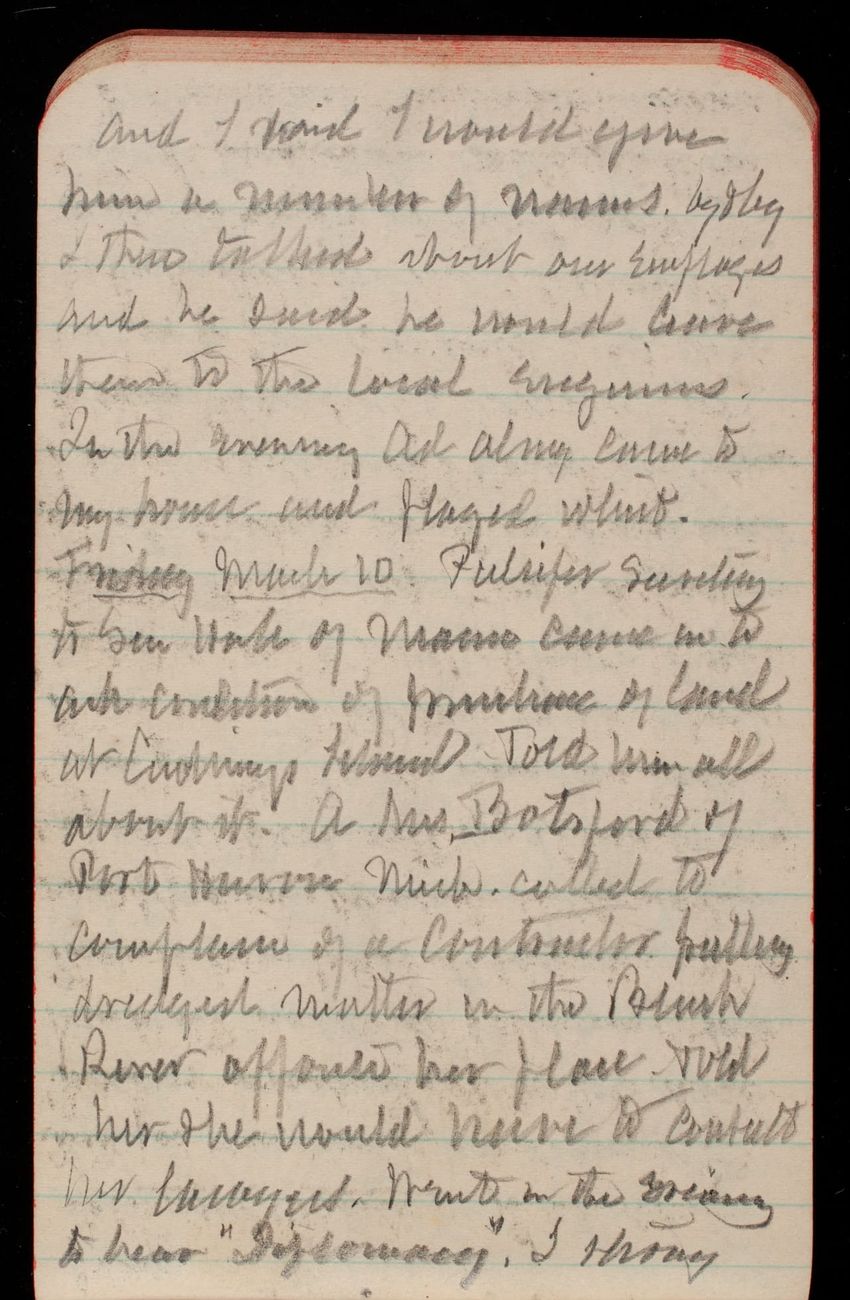 and I said I would give
him a number of names. by & by
I then talked about our employes
and he said he would leave
them to the local engineers.
In the evening Ad along came to
my house and played whist.
Friday March 10. Pulsifer Secretary
to Sen Hale of Maine came in to
ask condition of purchase of land
at Cushings Island. Told him all
about it. A Mrs. Botsford of
Port Huron Mich. called to
complain of a Contractor putting
dredged matter in the Black
River opposite her place. Told
her she would have to consult
her lawyers. Went in the evening
to hear "Diplomacy". I strong